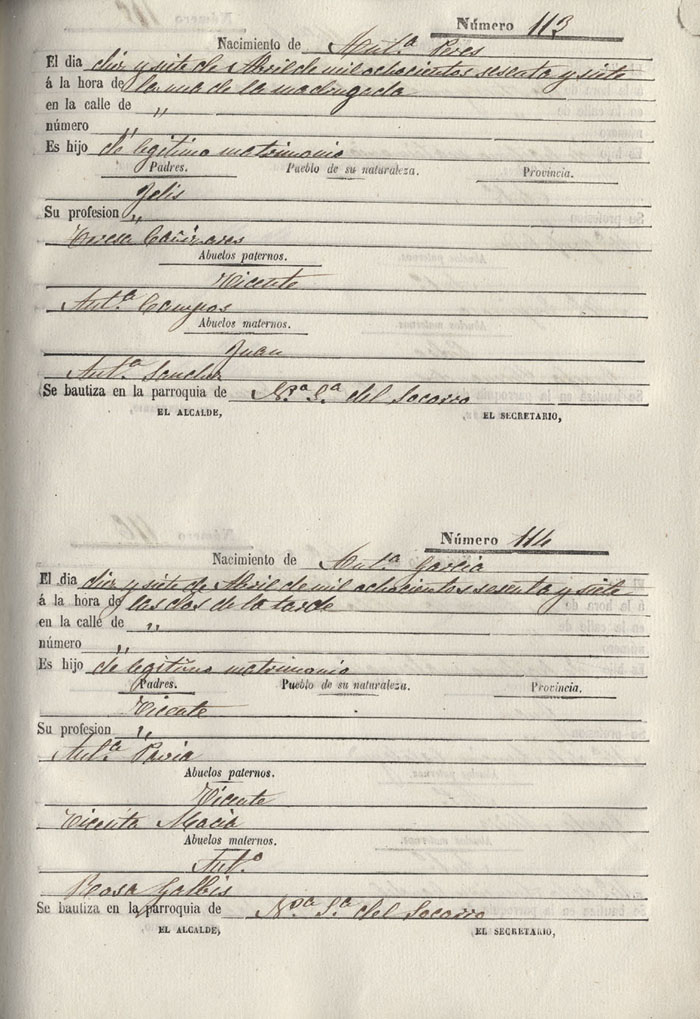 Número 113
Nacimiento de Ant.ª Peres
El dia diez y siete de Abril de mil ochocientos sesenta y siete
á la hora de la una de la madrugada
en la calle de "
número "
Es hijo de legitimo matrimonio
Padres. Pueblo de su naturaleza. Provincia.
Felis
Su profesion "
Teresa Cañizares
Abuelos paternos.
Vicente
Ant.ª Campos
Abuelos maternos.
Juan
Ant.ª Sanchez
Se bautiza en la parroquia de N.ª S.ª del Socorro
EL ALCALDE, EL SECRETARIO,
Número 114
Nacimiento de Ant.ª Garcia
El dia diez y siete de Abril de mil ochocientos sesenta y siete
á la hora de las dos de la tarde
en la calle de "
número "
Es hijo de legitimo matrimonio
Padres. Pueblo de su naturaleza. Provincia.
Vicente
Su profesion "
Ant.ª Pavia
Abuelos paternos.
Vicente
Vicenta Macia
Abuelos maternos.
Ant.º
Rosa Galbis
Se bautiza en la parroquia de N.ª S.ª del Socorro
EL ALCALDE, EL SECRETARIO,